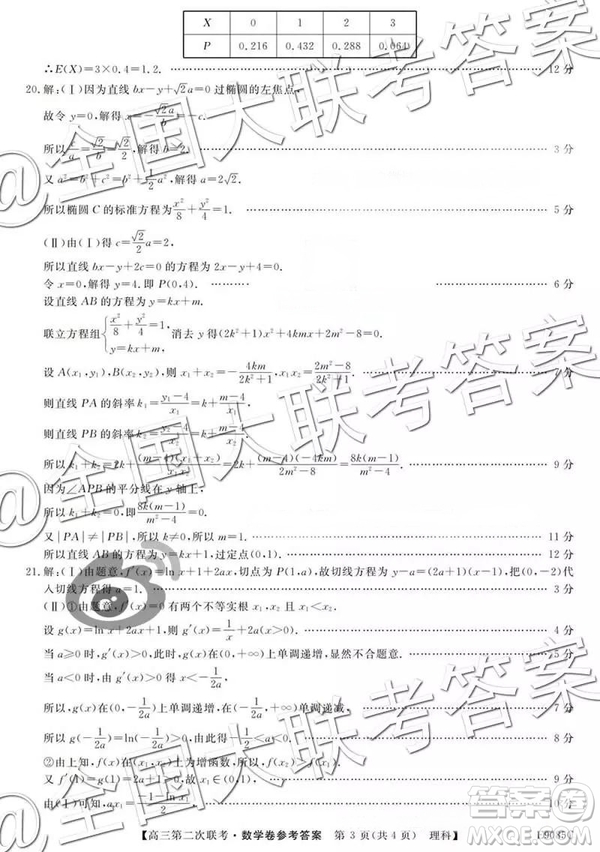 X 0 1 2 3
P 0.216 0.432 0.288 0.064
∴E(X)=3×0.4=1.2. 12分
20.解:(Ⅰ)因为直线bx-y+√2a=0过椭圆的左焦点,
故令y=0,解得x=-√2a/b=-c.
所以c/a=√2/b=√2/2,解得b=2. 3分
又a²=b²+c²=b²+½a²,解得a=2√2.
所以椭圆C的标准方程为x²/8+y²/4=1. 5分
(Ⅱ)由(Ⅰ)得c=√2/2a=2.
所以直线bx-y+2c=0的方程为2x-y+4=0.
令x=0,解得y=4.即P(0,4). 6分
设直线AB的方程为y=kx+m.
联立方程组{x²/8+y²/4=1, y=kx+m,消去y得(2k²+1)x²+4kmx+2m²-8=0.
设A(x₁,y₁),B(x₂,y₂),则x₁+x₂=-4km/2k²+1,x₁x₂=2m²-8/2k²+1.
则直线PA的斜率k₁=y₁-4/x₁=k+m-4/x₁.
则直线PB的斜率k₂=y₂-4/x₂=k+m-4/x₂.
所以k₁+k₂=2k+(m-4)(x₁+x₂)/x₁x₂=2k+(m-4)(-4km)/2m²-8=8k(m-1)/m²-4. 9分
因为∠APB的平分线在y轴上,
所以k₁+k₂=0,即8k(m-1)/m²-4=0.
又|PA|≠|PB|,所以k≠0,所以m=1. 11分
所以直线AB的方程为y=kx+1,过定点(0,1). 12分
21.解:(Ⅰ)由题意,f′(x)=ln x+1+2ax,切点为P(1,a),故切线方程为y-a=(2a+1)(x-1),把(0,-2)代
入切线方程得a=1. 3分
(Ⅱ)①由题意,f′(x)=0有两个不等实根x₁,x₂,且x₁<x₂.
设g(x)=ln x+2ax+1,则g′(x)=1/x+2a,x>0. 4分
当a≥0时,g′(x)>0,所以g(x)在(0,+∞)上单调递增,显然不成立. 5分
当a<0时,g′(x)=0,解得x=-1/2a.
所以g(x)在(0,-1/2a)上单调递增,在(-1/2a,+∞)单调递减,
所以g(-1/2a)=ln(-1/2a)>0,故-½<a<0. 8分
②由上知,f(x)在(x₁,x₂)上为增函数,
又f′(1)=g(1)=2a+1>0,故x₁∈(0,1). 9分
由①可知, 10分
【高三第二次联考·数学卷参考答案 第3页(共4页) 理科】
@全国大联考答案
@全国大联考答案
@全国大联考答案
作业精灵